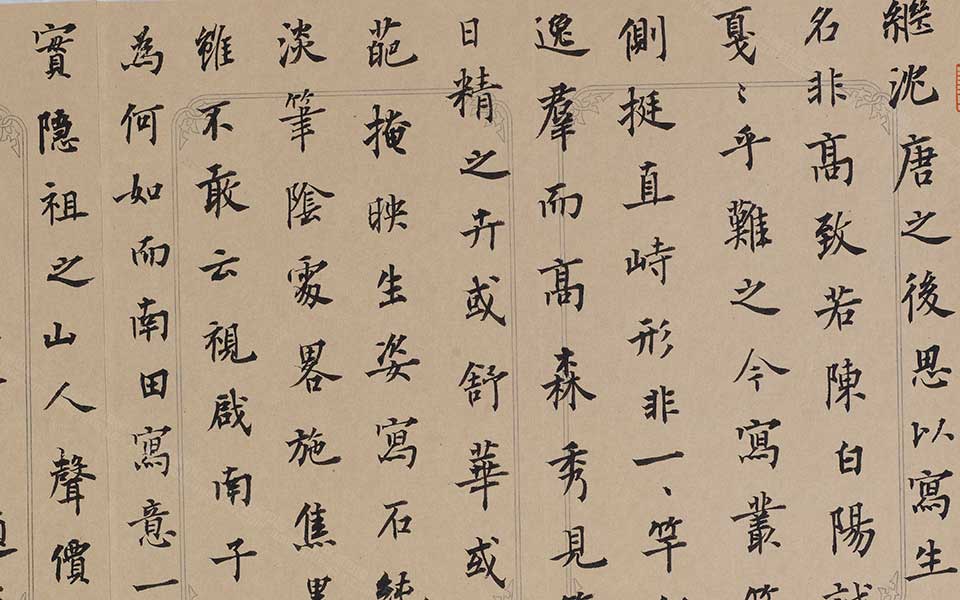 繼沈唐之後思以寫生
名非高致若陳白陽
戛〻乎難之今寫叢
側挺直峙形非一、竿
逸群而高森秀見
日精之卉或舒華或
葩掩映生姿寫石純
淡筆陰處略施焦墨
雖不敢云視戲南子
為何如而南田寫意一
實隱祖之山人聲價